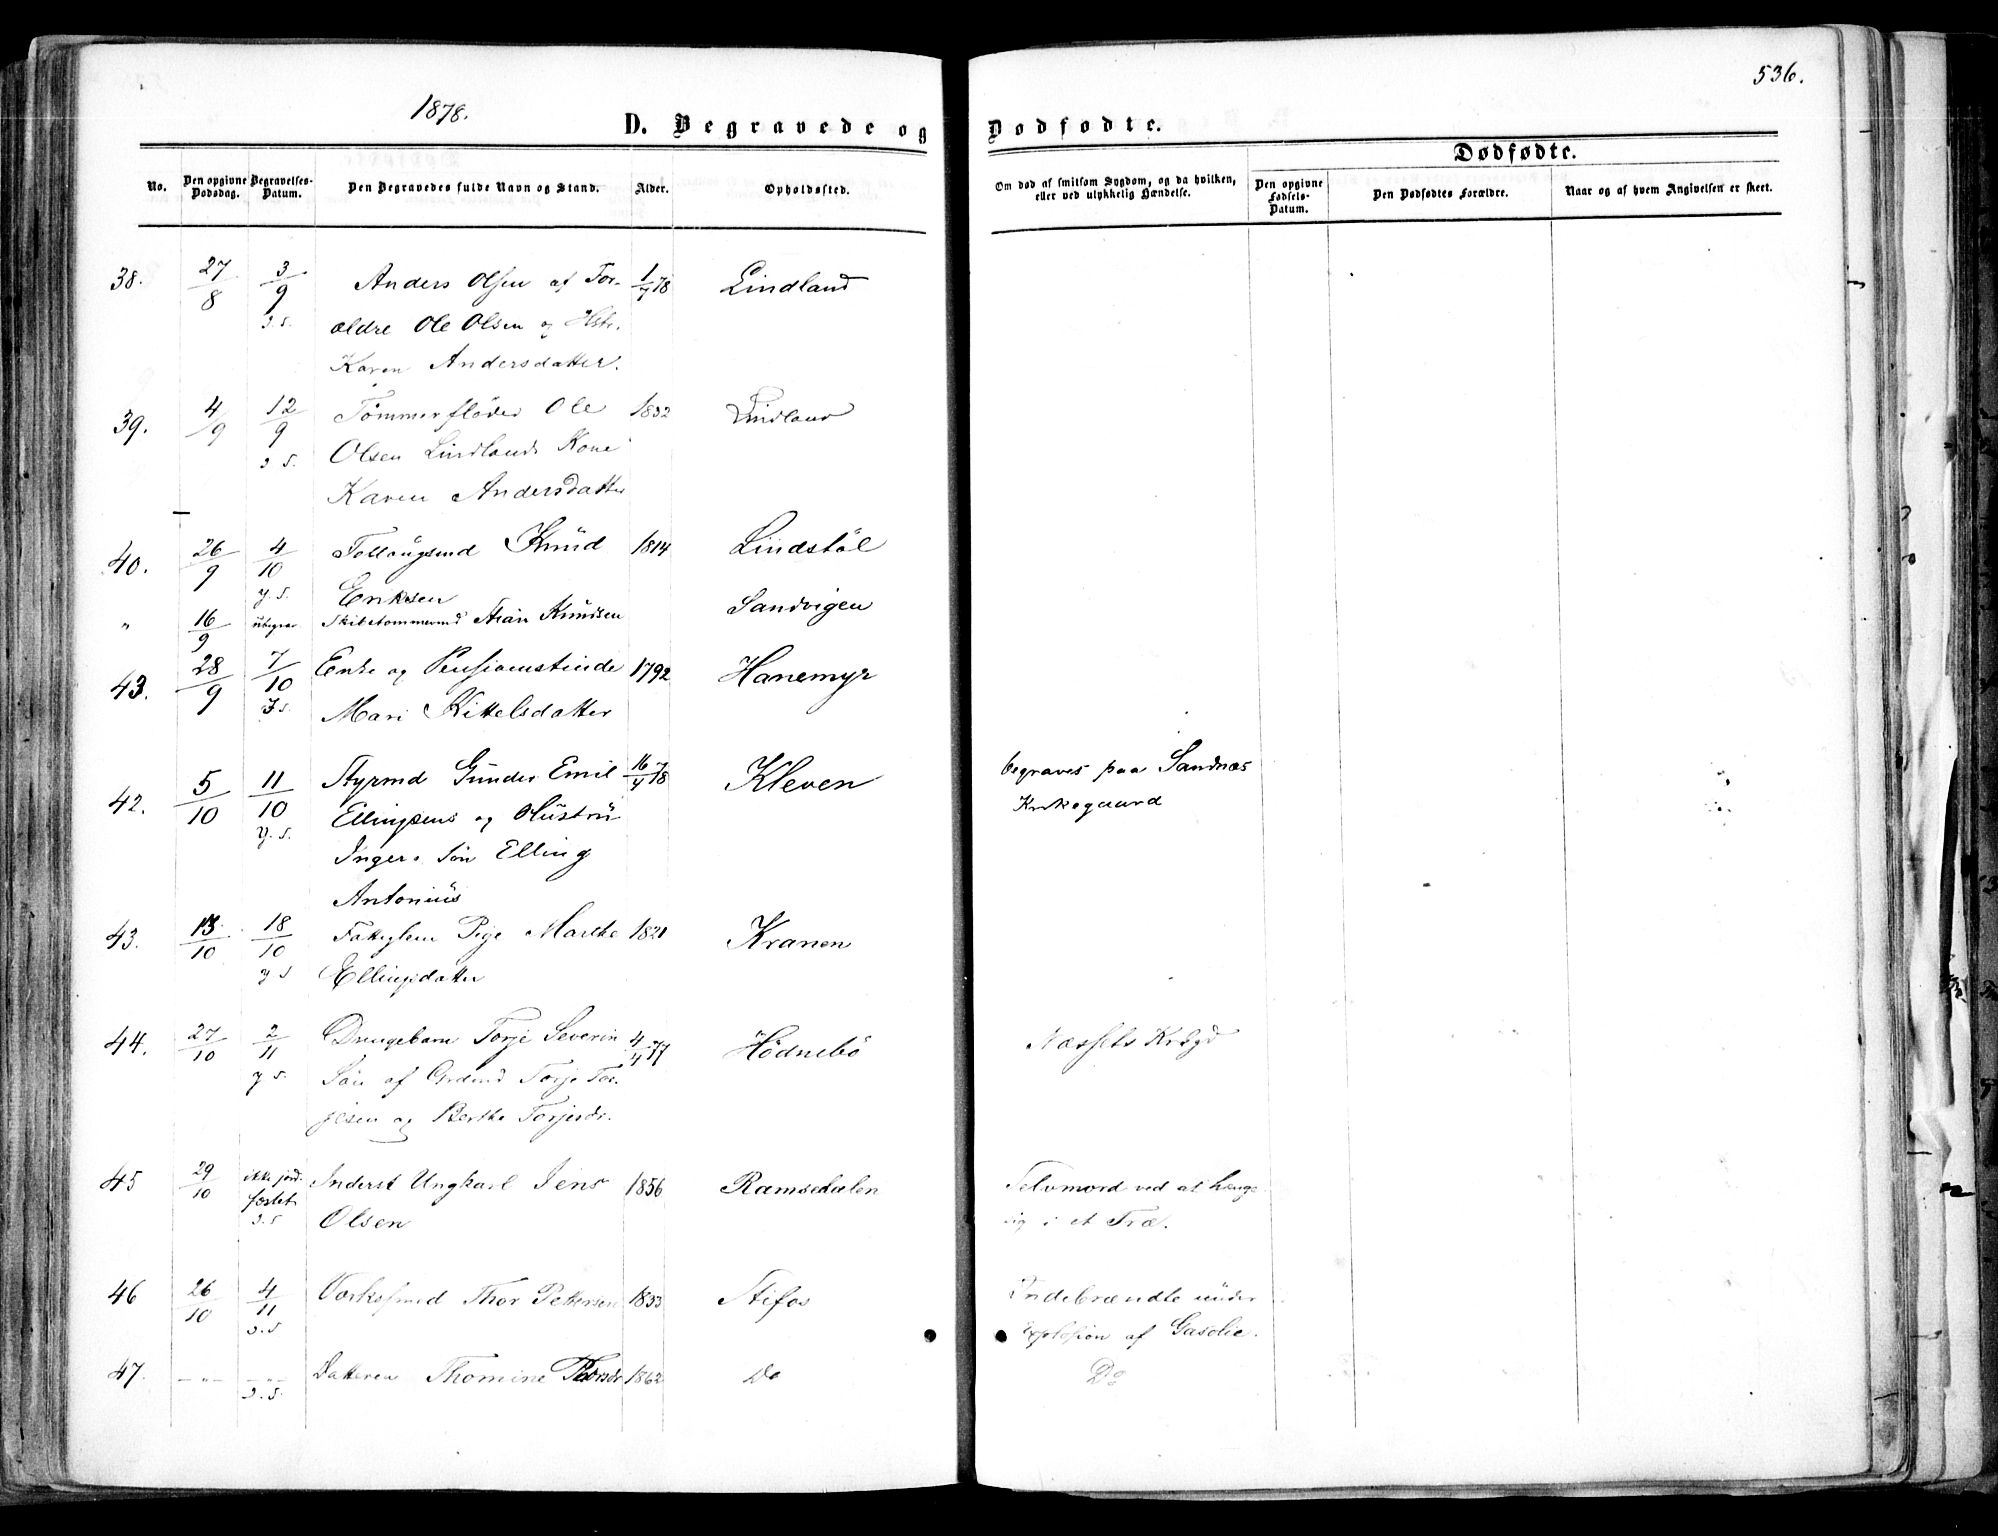 536.
1878.
D. Begravede og Dødfødte.
Dødfødte.
No.
Den opgivne Dødsdag.
Begravelses-Datum.
Den Begravedes fulde Navn og Stand.
Alder.
Opholdssted.
Om død af smitsom Sygdom, og da hvilken, eller ved ulykkelig Hændelse.
Den opgivne Fødsels-Datum.
Den Dødfødtes Forældre.
Naar og af hvem Angivelsen er skeet.
38. 27/8 3/9 Anders Olsen af For- 1/7 78 Lindland
ældre Ole Olsen og Hstr.
Karen Andersdatter.
39. 4/9 12/9 Tømmerfløder Ole 1832 Lindland
Olsen Lindlands Kone
Karen Andersdatter
40. 26/9 4/10 Knud 1814 Lindstøl
y. S. Eriksen
" 16/9 ubegrav. Skibstømmermd Knudsen Sandvigen
43. 28/9 7/10 Enke og 1792 Hanemyr
Mari Kittelsdatter
42. 5/10 11/10 Styrmd Gunder Emil 16/7 78 Kleven begraves paa Sandnæs
y. S. Ellingsens og Hustru Kirkegaard
Ingers Søn Elling
Antonius
43. 13/10 18/10 Fattiglem Pige Marthe 1821 Kranen
y S Ellingsdatter
44. 27/10 2/11 Drengebarn Torje Severin 4/4 77 Hødnebø Næssets Krkgd
y S. Søn af Grdmd Torje Tor-
jesen og Berthe Torjesdr.
45 29/10 ikke jord- Inderst Ungkarl Jens 1856 Ramsedalen Selvmord ved at hænge
fæstet Olsen sig i et Træ.
46 26/10 4/11 Værksmed Thor Pettersen 1833 Stifos Indebrændte under
Explosion af Gasolie.
47. -"- -"- Datteren Thomine Thorsdr 1862 Do Do